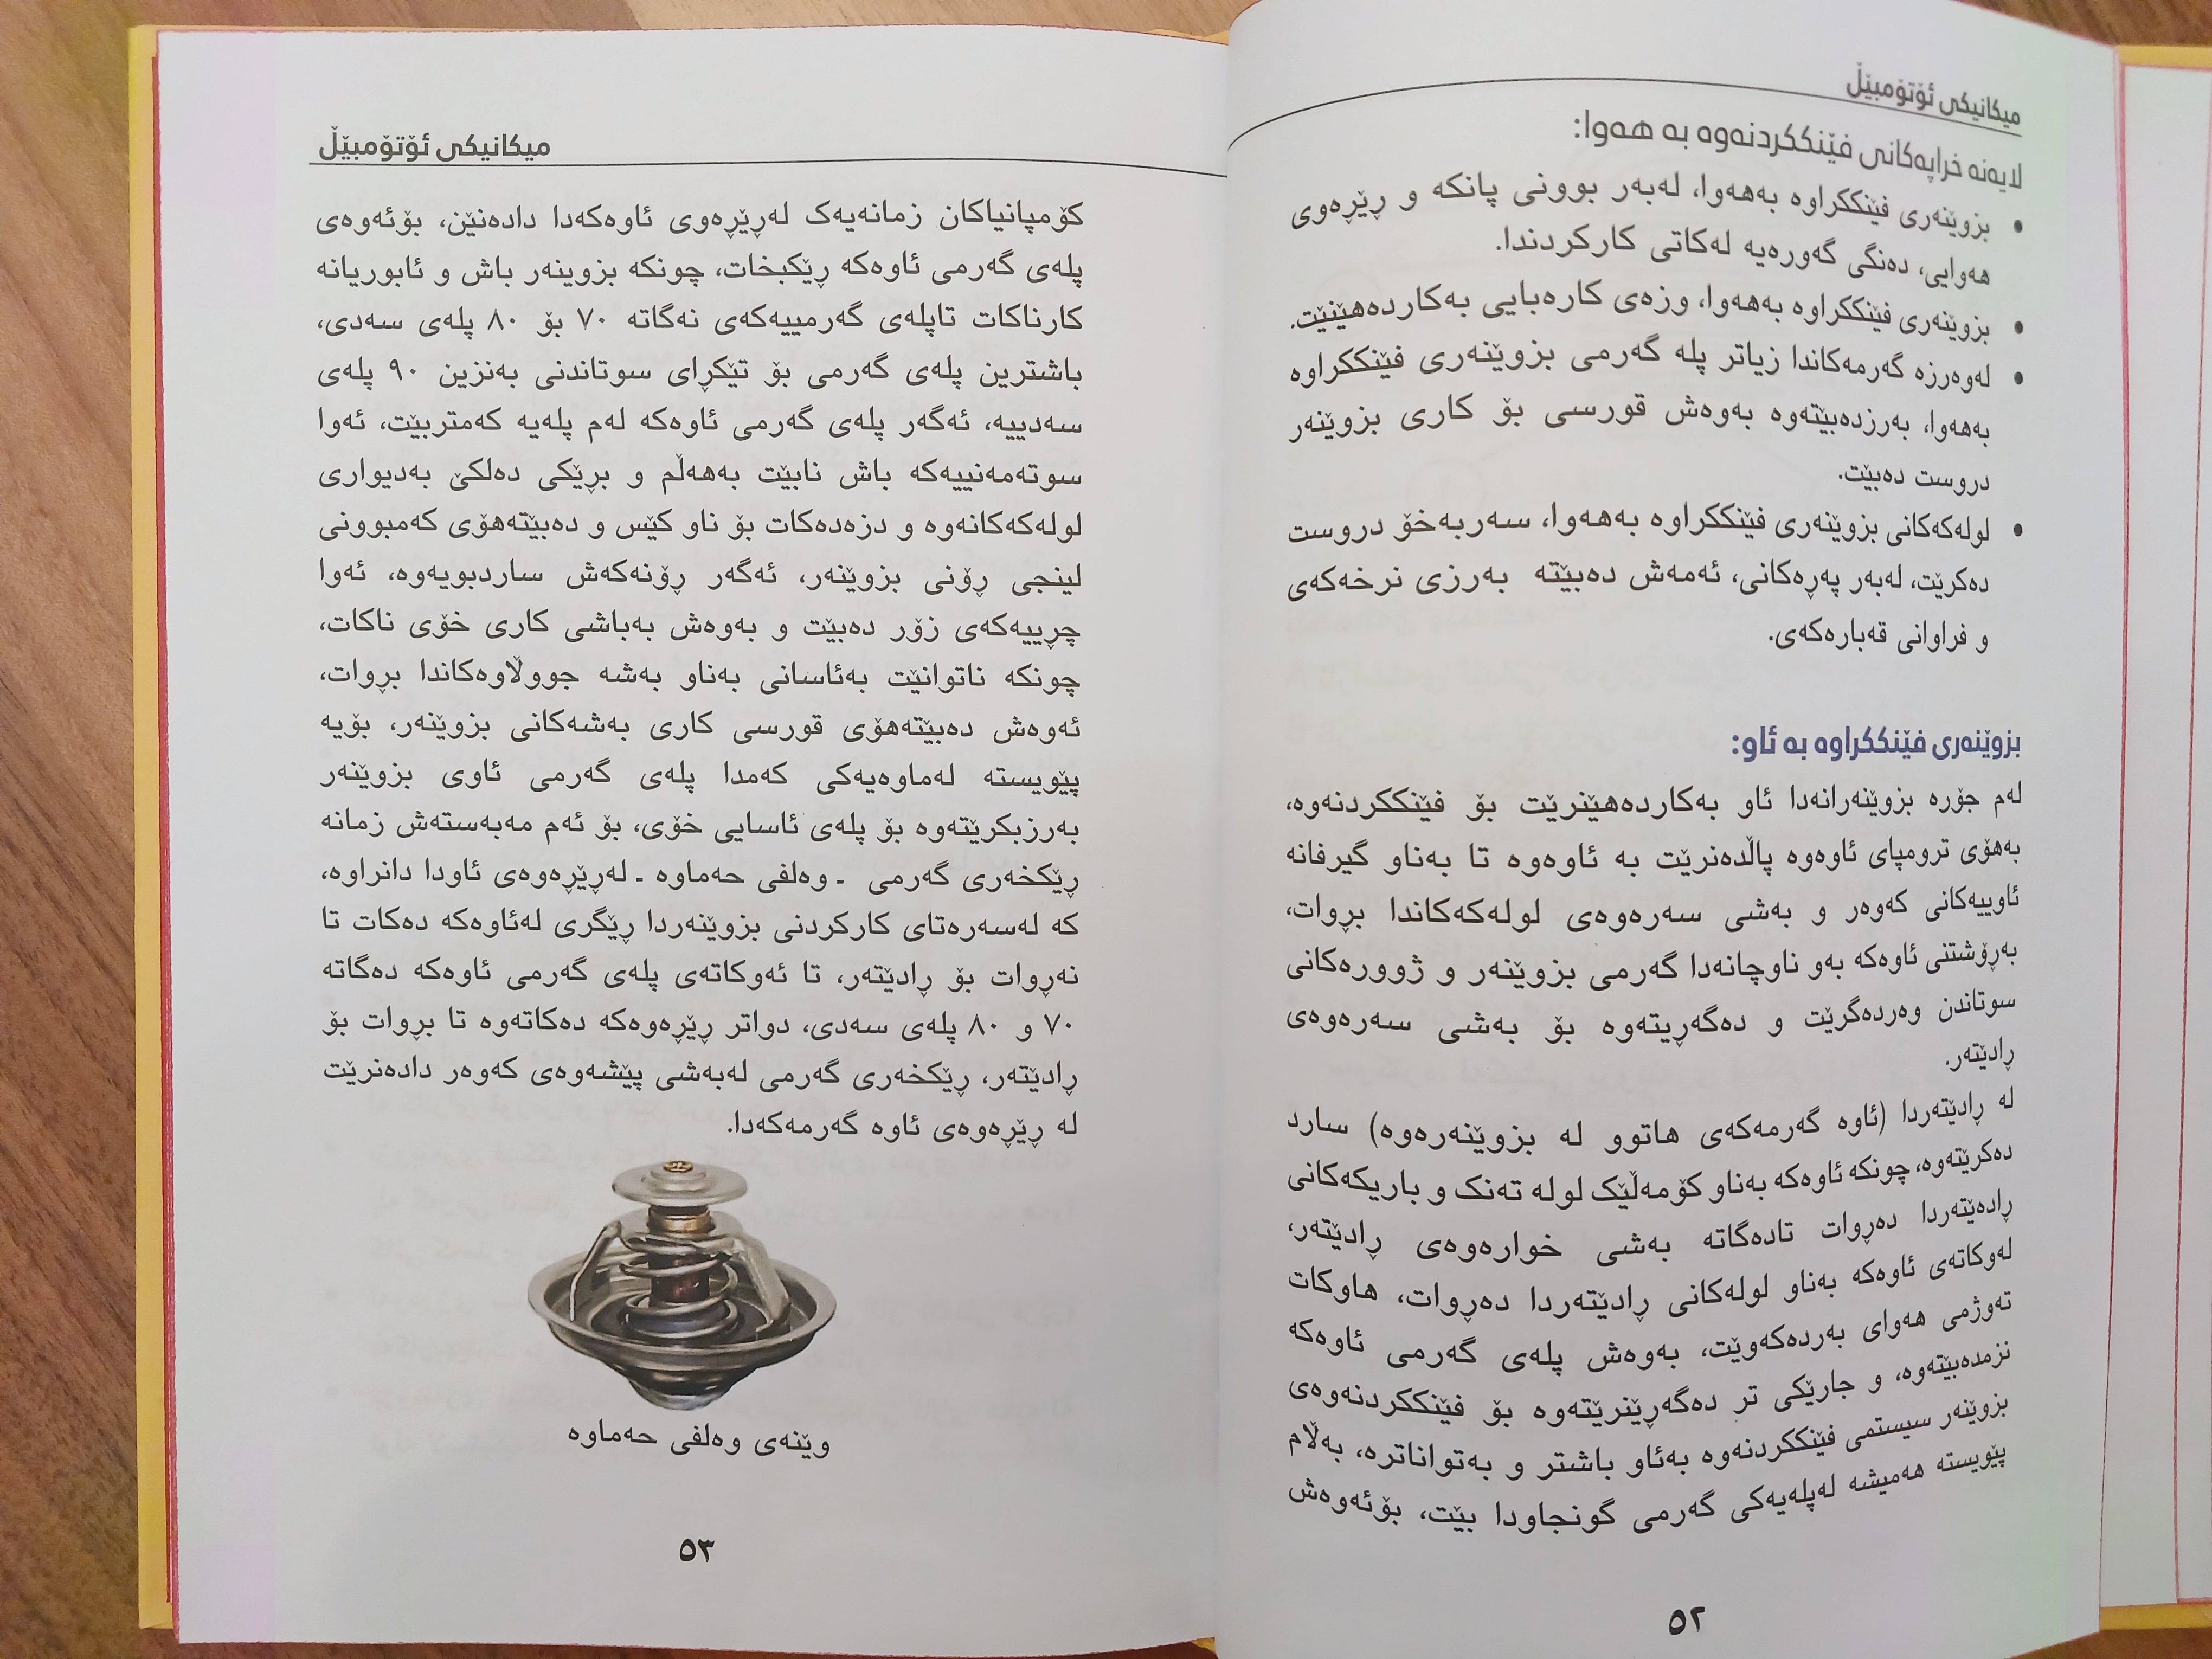 میکانیکی ئۆتۆمبێڵ
لایەنە خراپەکانی فێنککردنەوە بە هەوا:
• بزوێنەری فێنککراوە بەهەوا، لەبەر بوونی پانکە و ڕێڕەوی
هەوایی، دەنگی گەورەیە لەکاتی کارکردندا.
• بزوێنەری فێنککراوە بەهەوا، وزەی کارەبایی بەکاردەهێنێت.
• لەوەرزە گەرمەکاندا زیاتر پلە گەرمی بزوێنەری فێنککراوە
بەهەوا، بەرزدەبێتەوە بەوەش قورسی بۆ کاری بزوێنەر
دروست دەبێت.
• لولەکەکانی بزوێنەری فێنککراوە بەهەوا، سەربەخۆ دروست
دەکرێت، لەبەر پەڕەکانی، ئەمەش دەبێتە بەرزی نرخەکەی
و فراوانی قەبارەکەی.
بزوێنەری فێنککراوە بە ئاو:
لەم جۆرە بزوێنەرانەدا ئاو بەکاردەهێنرێت بۆ فێنککردنەوە،
بەهۆی ترومپای ئاوەوە پاڵدەنرێت بە ئاوەوە تا بەناو گیرفانە
ئاوییەکانی کەوەر و بەشی سەرەوەی لولەکەکاندا بڕوات،
بەڕۆشتنی ئاوەکە بەو ناوچانەدا گەرمی بزوێنەر و ژوورەکانی
سوتاندن وەردەگرێت و دەگەڕیتەوە بۆ بەشی سەرەوەی
ڕادێتەر.
لە ڕادێتەردا (ئاوە گەرمەکەی هاتوو لە بزوێنەرەوە) سارد
دەکرێتەوە، چونکە ئاوەکە بەناو کۆمەڵێک لولە تەنک و باریکەکانی
ڕادەێتەردا دەڕوات تادەگاتە بەشی خوارەوەی ڕادێتەر،
لەوکاتەی ئاوەکە بەناو لولەکانی ڕادێتەردا دەڕوات، هاوکات
تەوژمی هەوای بەردەکەوێت، بەوەش پلەی گەرمی ئاوەکە
نزمدەبێتەوە، و جارێکی تر دەگەڕێنرێتەوە بۆ فێنککردنەوەی
بزوێنەر سیستمی فێنککردنەوە بەئاو باشتر و بەتواناترە، بەڵام
پێویستە هەمیشە لەپلەیەکی گەرمی گونجاودا بێت، بۆئەوەش
٥٢
میکانیکی ئۆتۆمبێڵ
کۆمپانیاکان زمانەیەک لەڕێڕەوی ئاوەکەدا دادەنێن، بۆئەوەی
پلەی گەرمی ئاوەکە ڕێکبخات، چونکە بزوینەر باش و ئابوریانە
کارناکات تاپلەی گەرمییەکەی نەگاتە ٧٠ بۆ ٨٠ پلەی سەدی،
باشترین پلەی گەرمی بۆ تێکڕای سوتاندنی بەنزین ٩٠ پلەی
سەدییە، ئەگەر پلەی گەرمی ئاوەکە لەم پلەیە کەمتربێت، ئەوا
سوتەمەنییەکە باش نابێت بەهەڵم و بڕێکی دەلکێ بەدیواری
لولەکەکانەوە و دزەدەکات بۆ ناو کێس و دەبێتەهۆی کەمبوونی
لینجی ڕۆنی بزوێنەر، ئەگەر ڕۆنەکەش ساردبویەوە، ئەوا
چڕییەکەی زۆر دەبێت و بەوەش بەباشی کاری خۆی ناکات،
چونکە ناتوانێت بەئاسانی بەناو بەشە جووڵاوەکاندا بڕوات،
ئەوەش دەبێتەهۆی قورسی کاری بەشەکانی بزوێنەر، بۆیە
پێویستە لەماوەیەکی کەمدا پلەی گەرمی ئاوی بزوێنەر
بەرزبکرێتەوە بۆ پلەی ئاسایی خۆی، بۆ ئەم مەبەستەش زمانە
ڕێکخەری گەرمی ـ وەلفی حەماوە ـ لەڕێڕەوەی ئاودا دانراوە،
کە لەسەرەتای کارکردنی بزوێنەردا ڕێگری لەئاوەکە دەکات تا
نەڕوات بۆ ڕادێتەر، تا ئەوکاتەی پلەی گەرمی ئاوەکە دەگاتە
٧٠ و ٨٠ پلەی سەدی، دواتر ڕێڕەوەکە دەکاتەوە تا بڕوات بۆ
ڕادێتەر، ڕێکخەری گەرمی لەبەشی پێشەوەی کەوەر دادەنرێت
لە ڕێڕەوەی ئاوە گەرمەکەدا.
وێنەی وەلفی حەماوە
٥٣